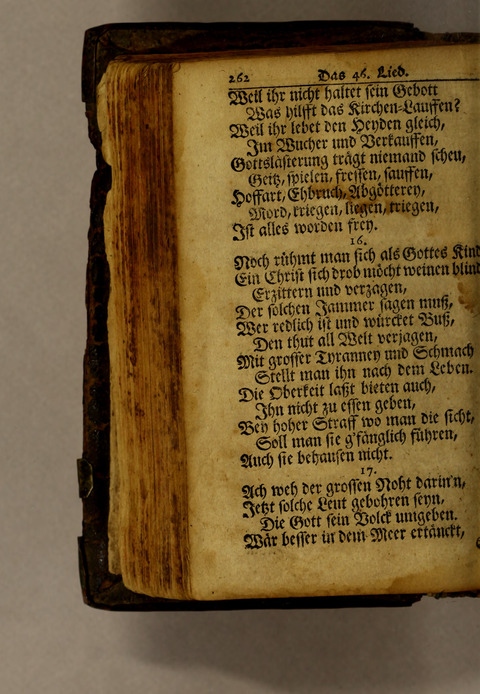 262 Das 46. Lied.
Weil ihr nicht haltet sein Gebott
Was hilfft das Kirchen-Lauffen?
Weil ihr lebet den Heyden gleich,
Im Wucher und Verkauffen,
Gottslästerung trägt niemand scheu,
Geitz, spielen, fressen, sauffen,
Hoffart, Ehbruch, Abgötterey,
Mord, kriegen, liegen, triegen,
Ist alles worden frey.
16.
Noch rühmt man sich als Gottes Kind
Ein Christ sich drob möcht weinen blind
Erzittern und verzagen,
Der solchen Jammer sagen muß,
Wer redlich ist und würcket Buß,
Den thut all Welt verjagen,
Mit grosser Tyranney und Schmach
Stellt man ihn nach dem Leben.
Die Oberkeit laßt bieten auch,
Ihn nicht zu essen geben,
Bey hoher Straff wo man die sicht,
Soll man sie g'fänglich führen,
Auch sie behausen nicht.
17.
Ach weh der grossen Noht darin'n,
Jetzt solche Leut gebohren seyn,
Die Gott sein Volck umgeben.
Wär besser in dem Meer ertänckt,